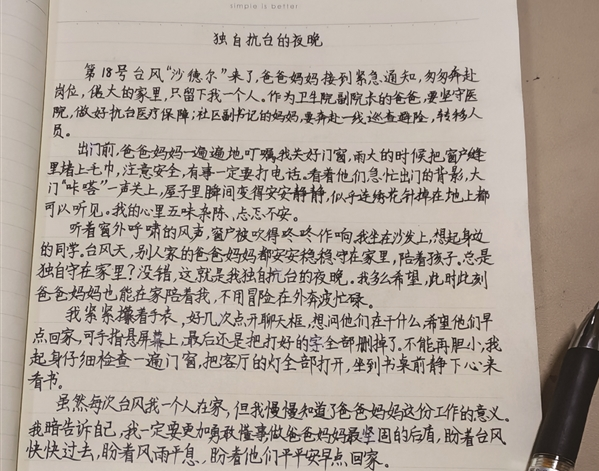 simple is better
独自抗台的夜晚
第18号台风“沙德尔”来了,爸爸妈妈接到紧急通知,匆匆奔赴
岗位,偌大的家里,只留下我一个人。作为卫生院副院长的爸爸,要坚守医
院,做好抗台医疗保障;社区副书记的妈妈,要奔赴一线巡查避险,转移人
员。
出门前,爸爸妈妈一遍遍地叮嘱我关好门窗,雨大的时候把窗户缝
里堵上毛巾,注意安全,有事一定要打电话。看着他们急忙出门的背影,大
门“咔嗒”一声关上,屋子里瞬间变得安安静静,似乎连绣花针掉在地上都
可以听见。我的心里五味杂陈、忐忑不安。
听着窗外呼啸的风声,窗户被吹得咚咚作响,我坐在沙发上,想起身边
的同学。台风天,别人家的爸爸妈妈都安安稳稳守在家里,陪着孩子。总是
独自守在家里?没错,这就是我独自抗台的夜晚。我多么希望,此时此刻
爸爸妈妈也能在家陪着我,不用冒险在外奔波忙碌。
我紧紧攥着手表,好几次点开聊天框,想问他们在干什么,希望他们早
点回家,可手指悬屏幕上,最后还是把打好的字全部删掉了。不能再胆小,我
起身仔细检查一遍门窗,把客厅的灯全部打开,坐到书桌前静下心来
看书。
虽然每次台风我一个人在家,但我慢慢知道了爸爸妈妈这份工作的意义。
我暗告诉自己,我一定要更加勇敢懂事做爸爸妈妈最坚固的后盾,盼着台风
快快过去,盼着风雨平息、盼着他们平平安早点回家。